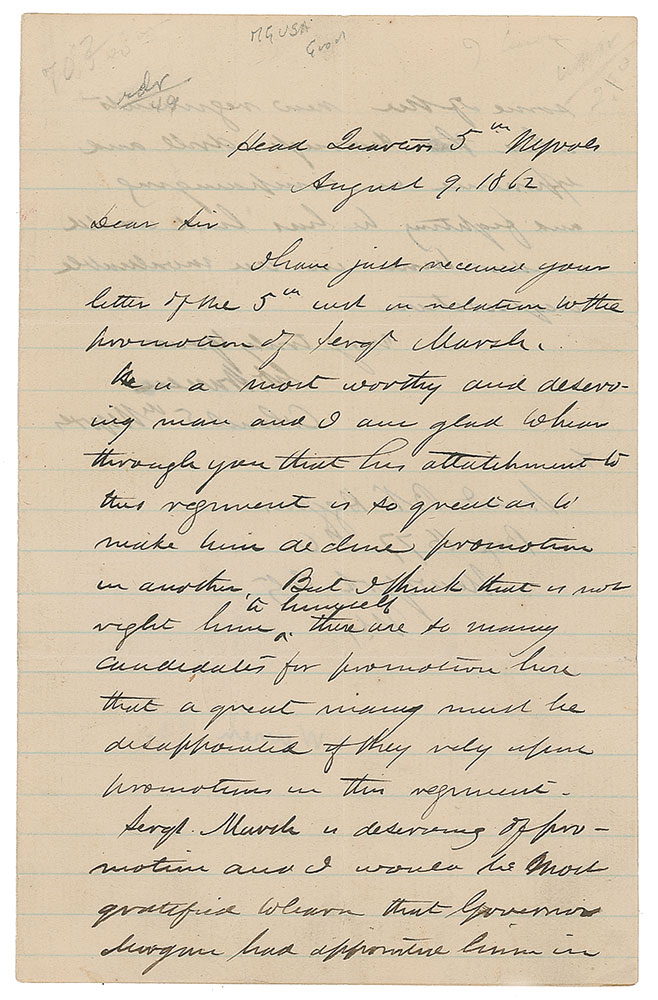 MGUSA
Head Quarters 5th NYVols
August 9, 1862
Dear Sir
I have just received your
letter of the 5th inst in relation to the
promotion of Sergt Marsh.
He is a most worthy and deserv-
ing man and I am glad to hear
through you that his attatchment to
this regiment is so great as to
make him decline promotion
in another. But I think that is not
to himself
right him ^ there are so many
candidates for promotion here
that a great many must be
disappointed if they rely upon
promotions in this regiment.
Sergt. Marsh is deserving of pro-
motion and I would be most
gratified to learn that Governor
Morgan had appointed him in